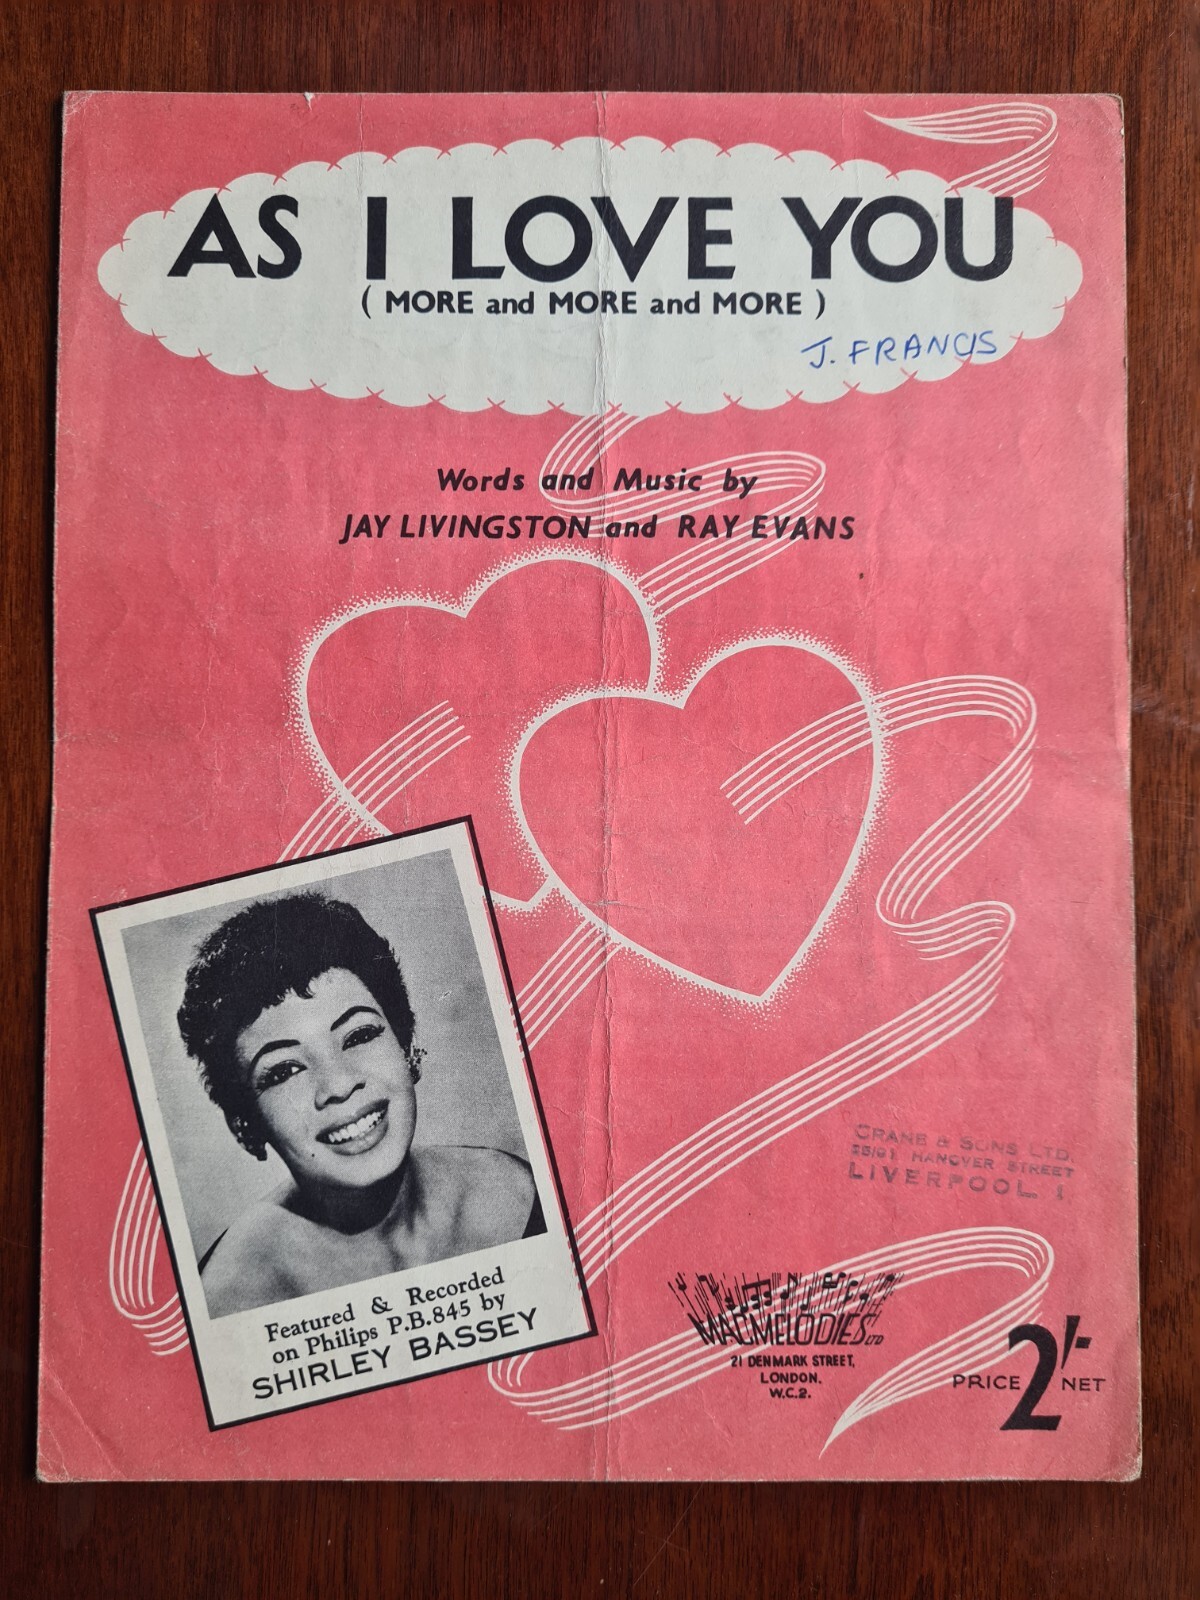 AS I LOVE YOU
( MORE and MORE and MORE )
J. FRANCIS
Words and Music by
JAY LIVINGSTON and RAY EVANS
Featured & Recorded
on Philips P.B.845 by
SHIRLEY BASSEY
CRANE & SONS LTD.
HANOVER STREET
LIVERPOOL 1
MACMELODIES LTD
21 DENMARK STREET,
LONDON.
W.C.2.
PRICE 2/- NET